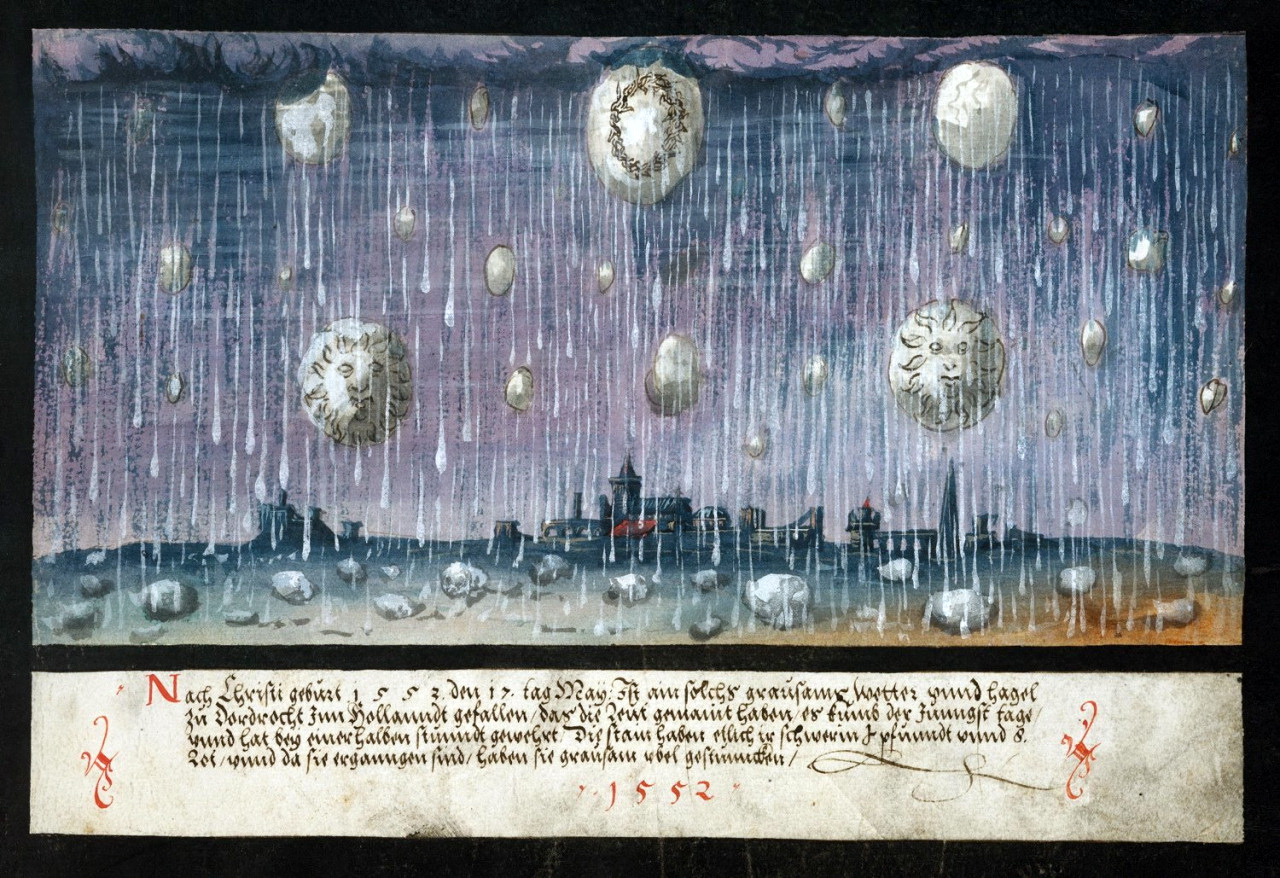 Nach Christi geburt 1552. den 17. tag May. Ist ain solchs grausams wetter vnnd hagel
zu Dordrecht Inn Hollanndt gefallen / das die leut gemaint haben / es kumb der Jungst tage /
vnnd hat bey einer halben stunndt gewehrt. Die stain haben etlich ir schwerin pfunndt vnnd 8.
Lot / vnnd da sie ergangngen sind / haben sie grausam vbel gestunncken /
1552